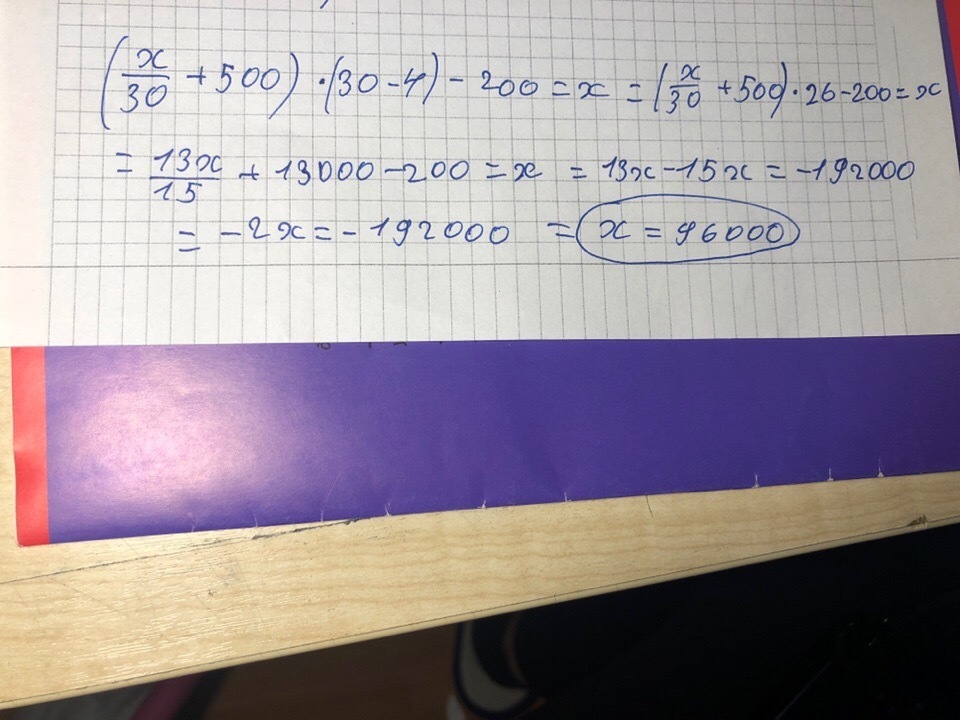 (x/30 + 500) · (30 - 4) - 200 = x = (x/30 + 500) · 26 - 200 = x
= 13x/15 + 13000 - 200 = x = 13x - 15x = -192000
= -2x = -192000 = x = 96000